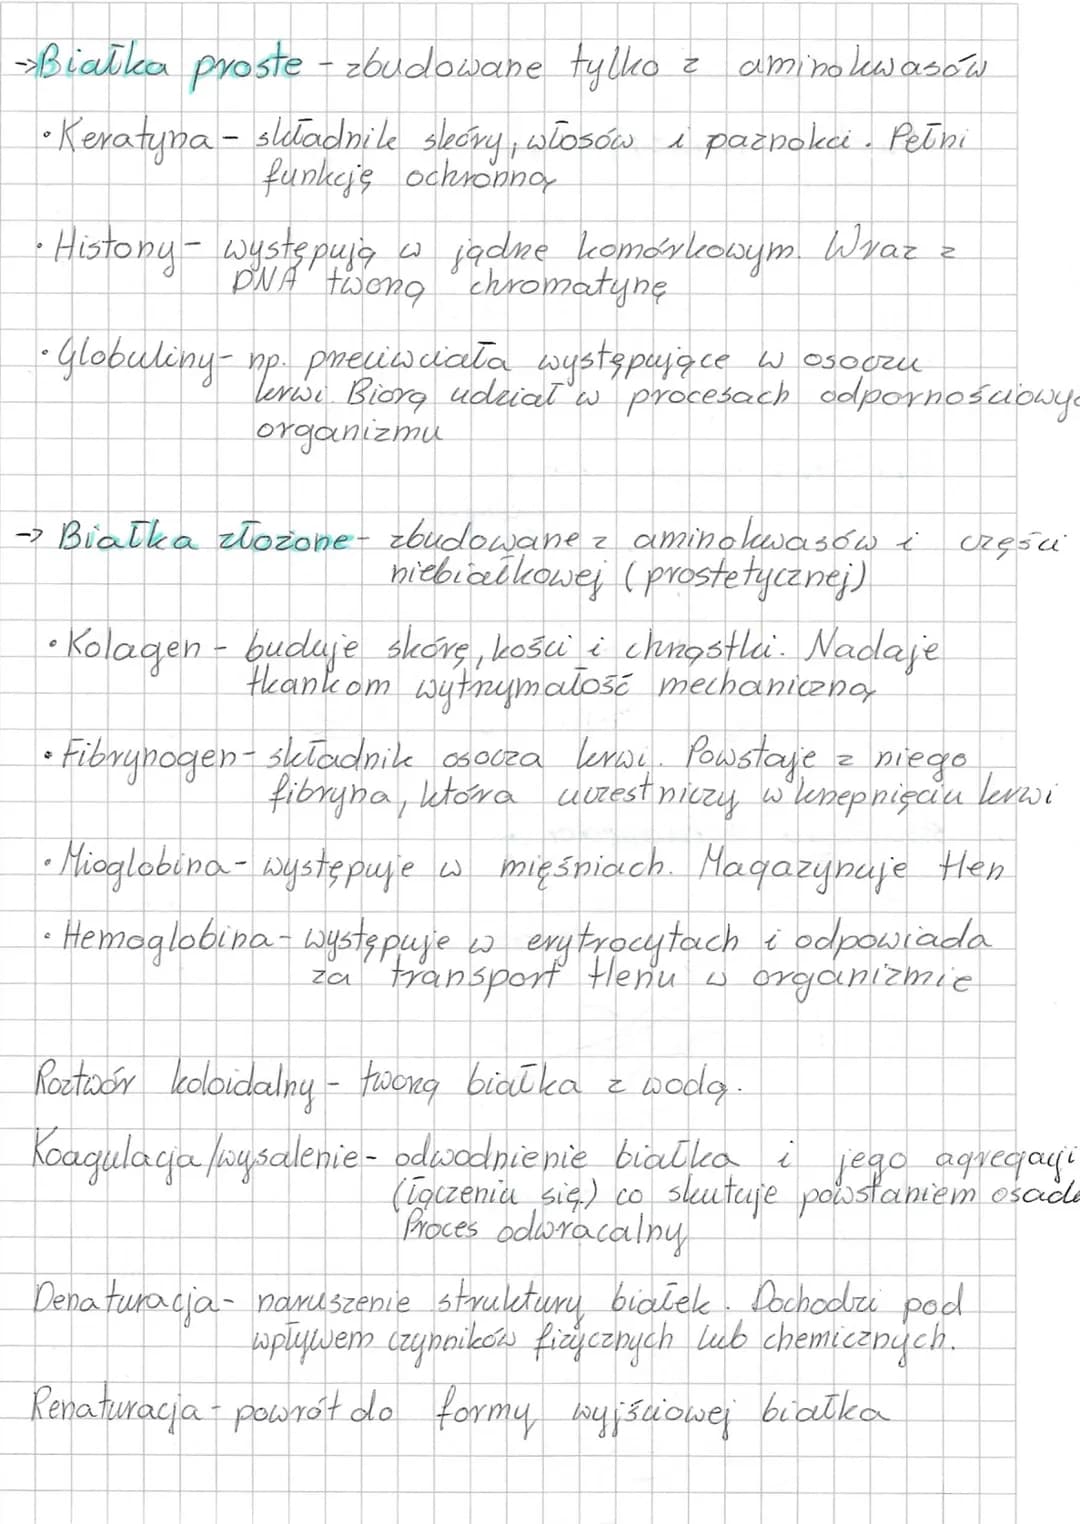 →Białka proste - zbudowane tylko z aminokwasów
• Keratyna - składnik skóry, włosów i paznokci. Pełni
funkcję ochronną
• Histony - występują w jądrze komórkowym. Wraz z
DNA tworzą chromatynę
• Globuliny - np. przeciwciała występujące w osoczu
krwi. Biorą udział w procesach odpornościowyc
organizmu
→ Białka złożone - zbudowane z aminokwasów i części
niebiałkowej (prostetycznej)
• Kolagen - buduje skórę, kości i chrząstki. Nadaje
tkankom wytrzymałość mechaniczną
• Fibrynogen - składnik osocza krwi. Powstaje z niego
fibryna, która uczestniczy w krzepnięciu krwi
• Mioglobina - występuje w mięśniach. Magazynuje tlen
• Hemoglobina - występuje w erytrocytach i odpowiada
za transport tlenu w organizmie
Roztwór koloidalny - tworzą białka z wodą.
Koagulacja/wysalenie - odwodnienie białka i jego agregacji
(łączeniu się) co skutuje powstaniem osadu
Proces odwracalny
Denaturacja - naruszenie struktury białek. Dochodzi pod
wpływem czynników fizycznych lub chemicznych.
Renaturacja - powrót do formy wyjściowej białka